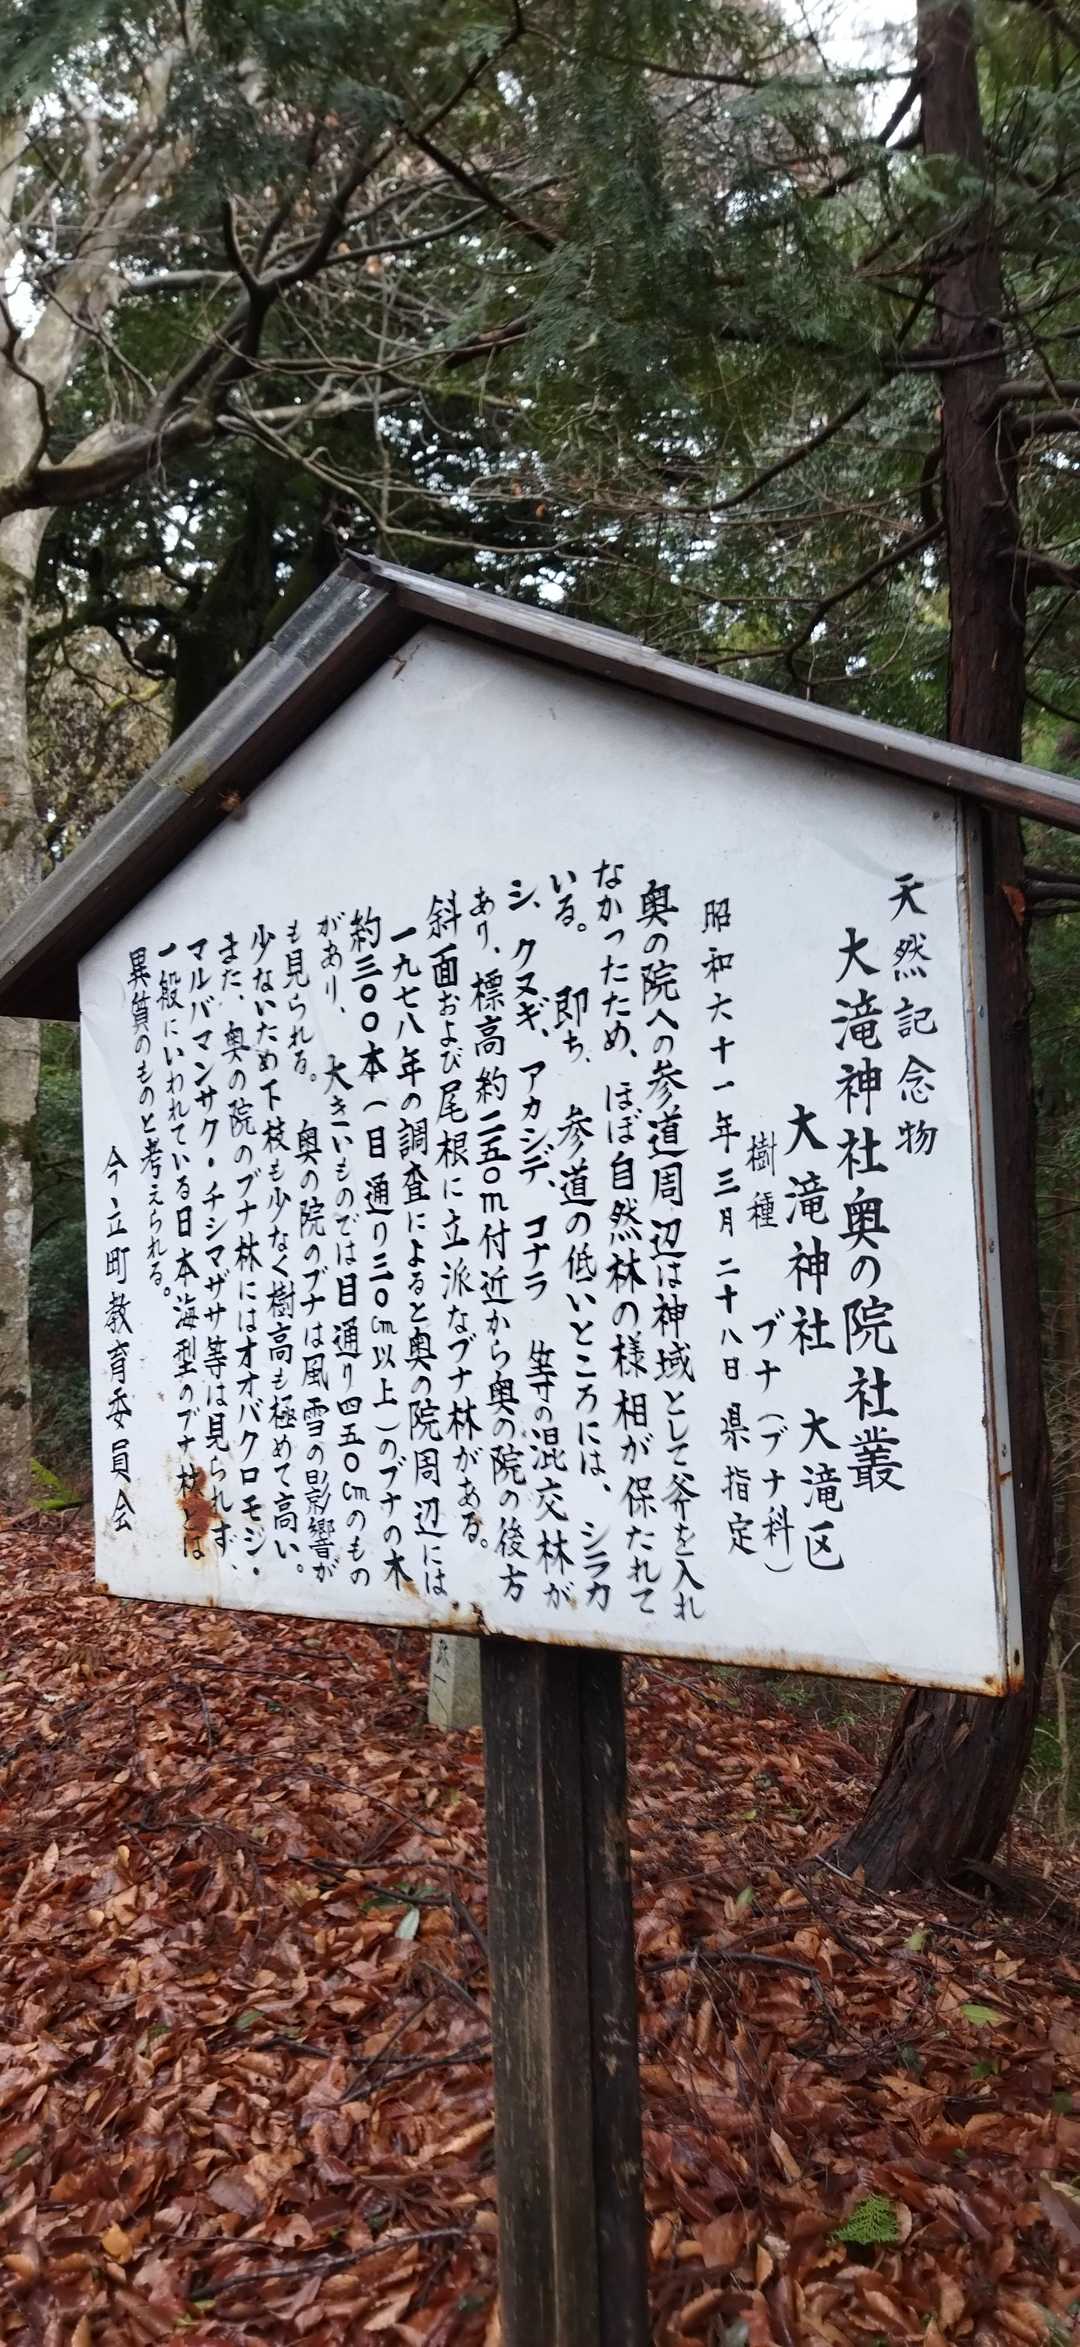 天然記念物
大滝神社奥の院社叢
大滝神社 大滝区
樹種 ブナ(ブナ科)
昭和六十一年三月二十八日県指定
奥の院への参道周辺は神域として斧を入れ
なかったため、ほぼ自然林の様相が保たれて
いる。即ち、参道の低いところには、シラカ
シ、クヌギ、アカシデ、コナラ 等の混交林が
あり、標高約二五〇m付近から奥の院の後方
斜面および尾根に立派なブナ林がある。
一九七八年の調査によると奥の院周辺には
約三〇〇本(目通り三〇cm以上)のブナの木
があり、大きいものでは目通り四五〇cmのもの
も見られる。奥の院のブナは風雪の影響が
少ないため下枝も少なく樹高も極めて高い。
また、奥の院のブナ林にはオオバクロモジ・
マルバマンサク・チシマザサ等は見られず、
一般にいわれている日本海型のブナ林とは
異質のものと考えられる。
今立町教育委員会